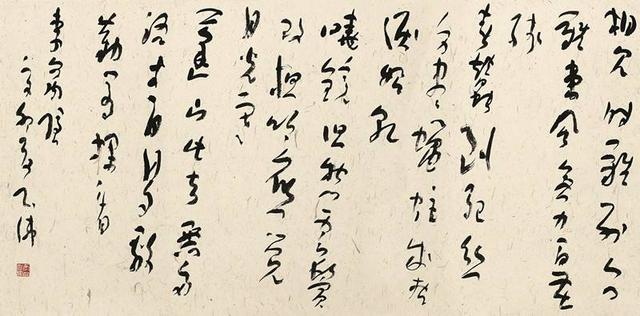 相見時難別亦
難東風無力百花
殘
春蠶到死絲
方盡蠟炬成灰
淚始乾
曉鏡但愁雲鬢
改夜吟應覺
月光寒
蓬山此去無多
路青鳥殷
勤為探看
李商隱